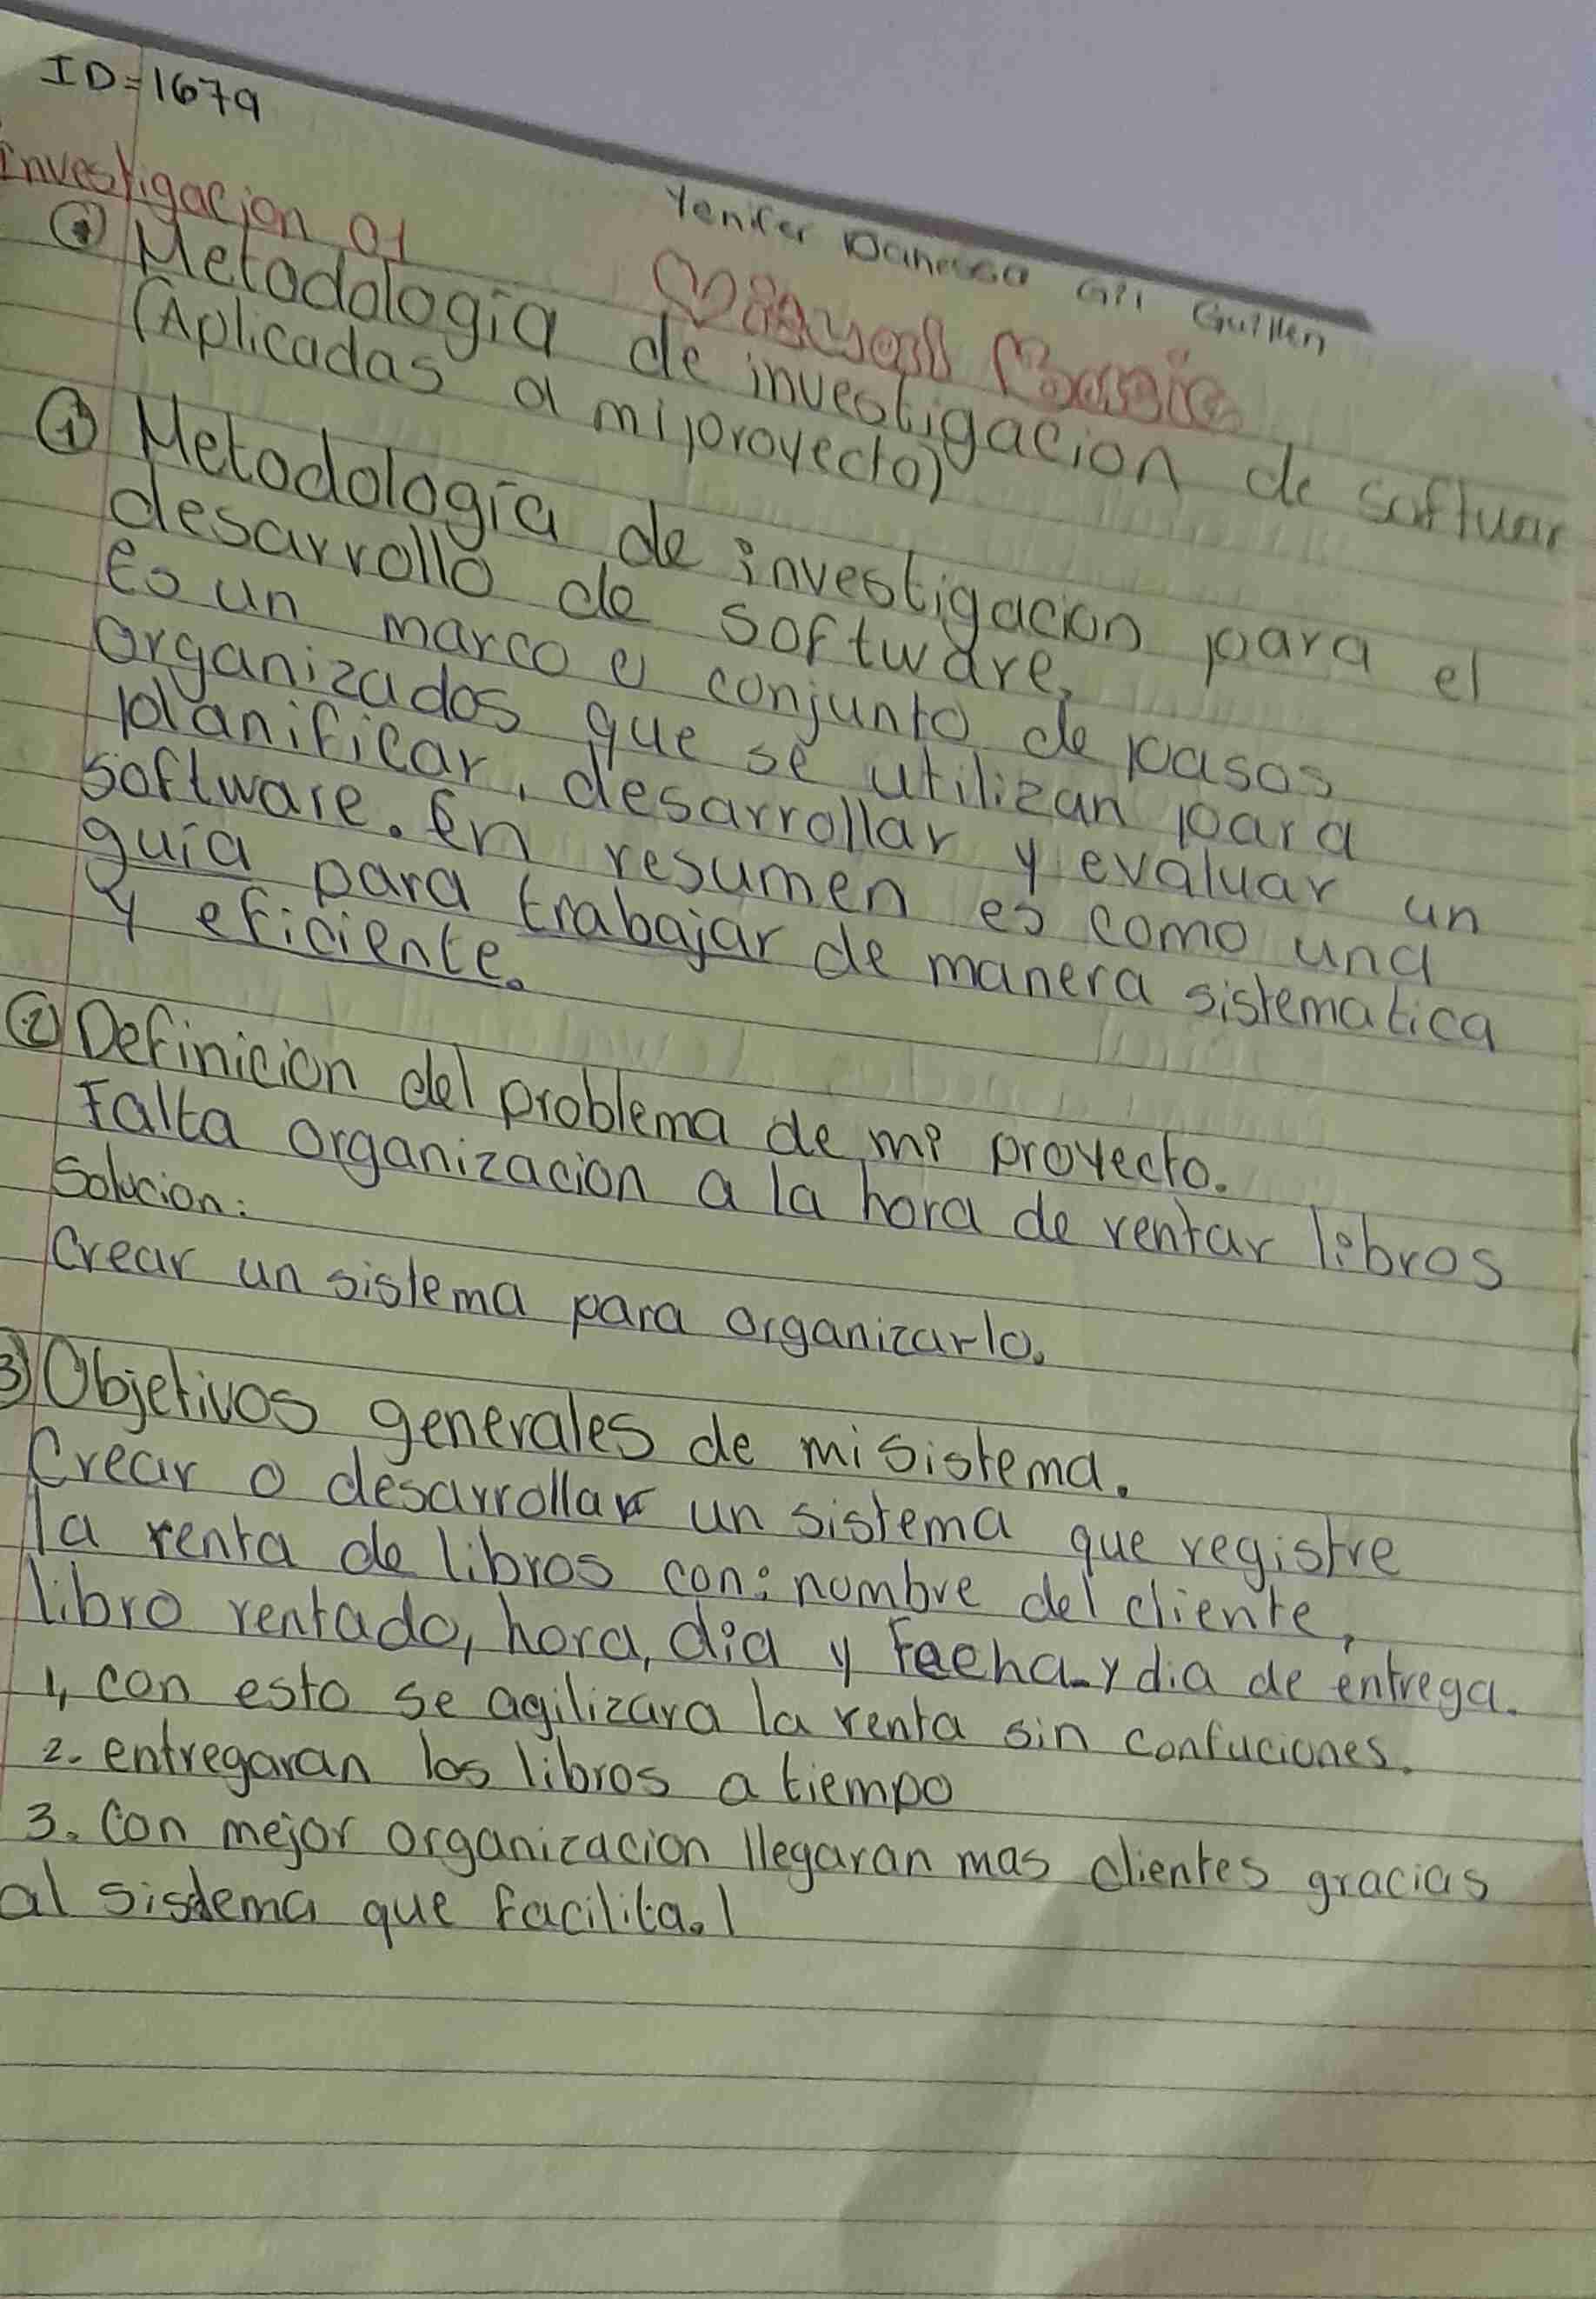 ID=1679
Investigacion 01
Yenifer Danessa Gil Guillen
Visual Basic
Metodología de investigacion de softwar
(Aplicadas a mi proyecto)
① Metodología de investigacion para el
desarrollo de software,
es un marco o conjunto de pasos
organizados que se utilizan para
planificar, desarrollar y evaluar un
software. En resumen es como una
guía para trabajar de manera sistematica
y eficiente.
② Definicion del problema de mi proyecto.
Falta organizacion a la hora de rentar libros
Solucion:
Crear un sistema para organizarlo.
3) Objetivos generales de mi sistema.
Crear o desarrollar un sistema que registre
la renta de libros con: nombre del cliente,
libro rentado, hora, dia y fecha y dia de entrega.
1, con esto se agilizara la renta sin confuciones.
2. entregaran los libros a tiempo
3. Con mejor organizacion llegaran mas clientes gracias
al sistema que facilita.